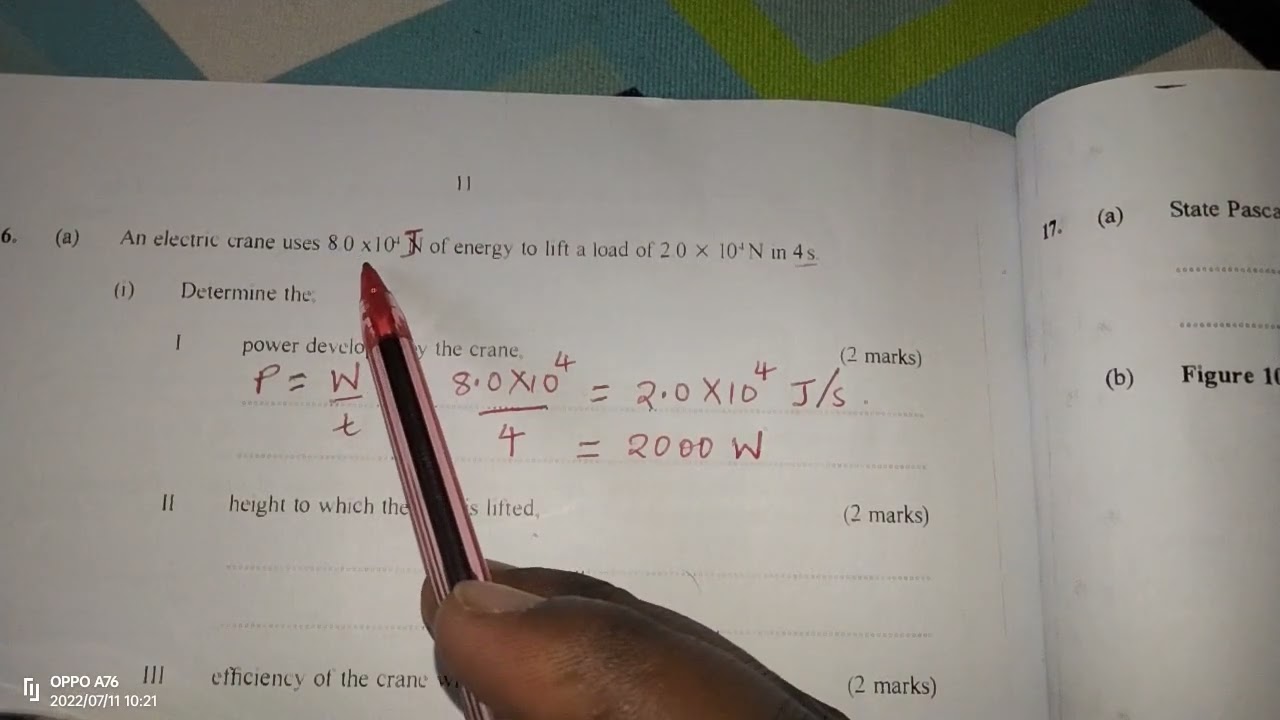 11
6. (a) An electric crane uses 8.0 ×10⁴ J of energy to lift a load of 2.0 × 10⁴ N in 4 s.
(i) Determine the;
I power by the crane, (2 marks)
P = W/t 8.0×10⁴/4 = 2.0×10⁴ J/s.
= 2000 W
II height to which the is lifted, (2 marks)
III efficiency of the crane (2 marks)
17. (a) State
(b) Figure
OPPO A76
2022/07/11 10:21